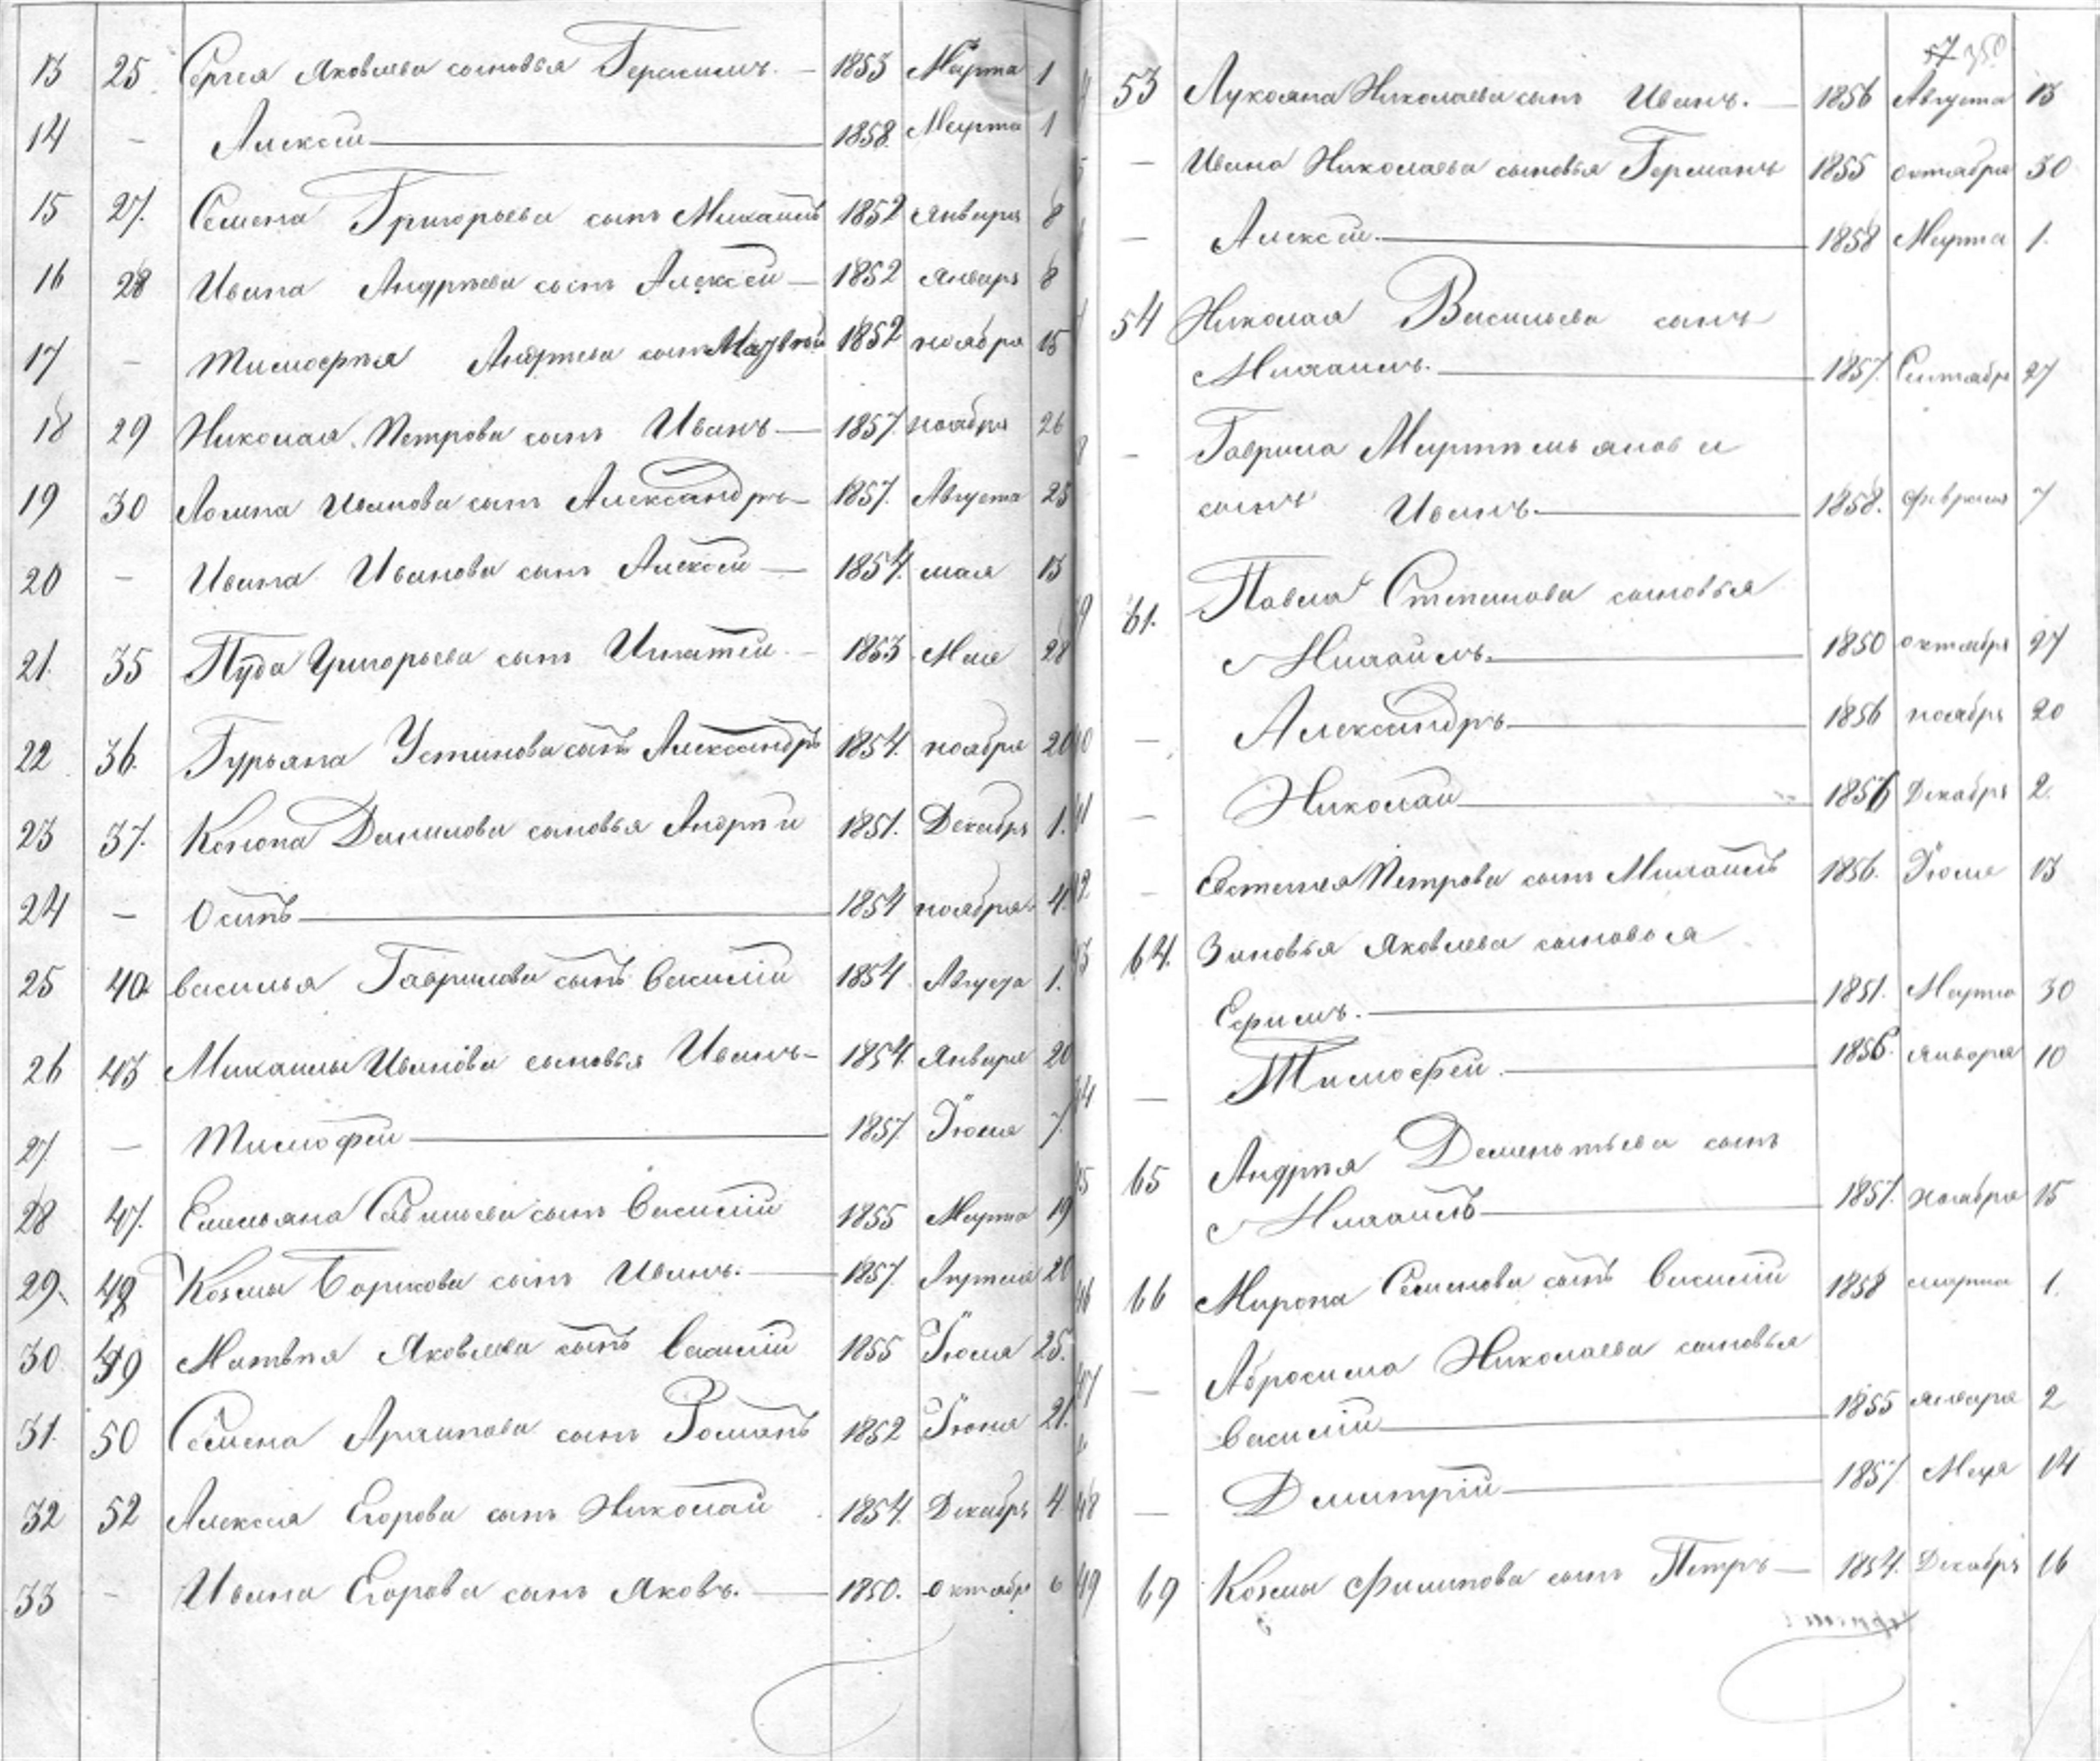 13 25 Сергея Яковлева сыновья Герасимъ. — 1853 Марта 1
14 — Алексѣй — 1858. Марта 1
15 27. Семена Григорьева сынъ Михаилъ 1852 Января 8
16 28 Ивана Андрѣева сынъ Алексѣй — 1852 январь 8
17 — Тимофѣя Андрѣева сынъ 1852 ноября 15
18 29 Николая Петрова сынъ Иванъ — 1857. ноября 26
19 30 Логина Иванова сынъ Александръ — 1857. Августа 25
20 — Ивана Иванова сынъ Алексѣй — 1854. мая 13
21. 35 Пуда Григорьева сынъ Игнатей. — 1853. Мая 28
22 36. Гурьяна Устинова сынъ Александръ 1854. ноября 20
23 37. Конона Данилова сыновья Андрѣй 1851. Декабря 1.
24 — Осипъ — 1854 ноября 4.
25 40. Василья Гаврилова сынъ Василій 1854 Августа 1.
26 43 Михаилы Иванова сыновья Иванъ — 1854. Января 20
27 — Тимофей — 1857. Іюля 7.
28 47. Емельяна Савельева сынъ Василій 1855 Марта 19
29. 48 Козмы Борисова сынъ Иванъ. — 1857. Апрѣля 20
30 49 Матвѣя Яковлева сынъ Василій 1855 Іюля 25.
31. 50 Семена Архипова сынъ Романъ 1852 Іюня 21.
32 52 Алексѣя Егорова сынъ Николай 1854. Декабрь 4.
33 — Ивана Егорова сынъ Яковъ. — 1850. октября 6
57
53 Лукояна Николаева сынъ Иванъ. — 1856 Августа 13
— Ивана Николаева сыновья Германъ 1855 октября 30
— Алексѣй. — 1858 Марта 1.
54 Николая Васильева сынъ
Михаилъ. — 1857. Сентября 27
— Гаврила Мартемьянова
сынъ Иванъ. — 1858. февраля 7
61. Павла Степанова сыновья
Михаилъ. — 1850 октября 27
— Александръ — 1856 ноября 20
— Николай — 1856 Декабря 2.
— Евстегнея Петрова сынъ Михаилъ 1856. Іюля 13
64. Зиновья Яковлева сыновья
Ефимъ. — 1851. Марта 30
— Тимофей. — 1856. января 10
65 Андрѣя Дементьева сынъ
Михаилъ — 1857. ноября 15
66 Мирона Семенова сынъ Василій 1858 марта 1.
— Абросима Николаева сыновья
Василій — 1855 января 2
— Дмитрій — 1857 Мая 14
69 Козмы Филипова сынъ Петръ — 1854. Декабря 16